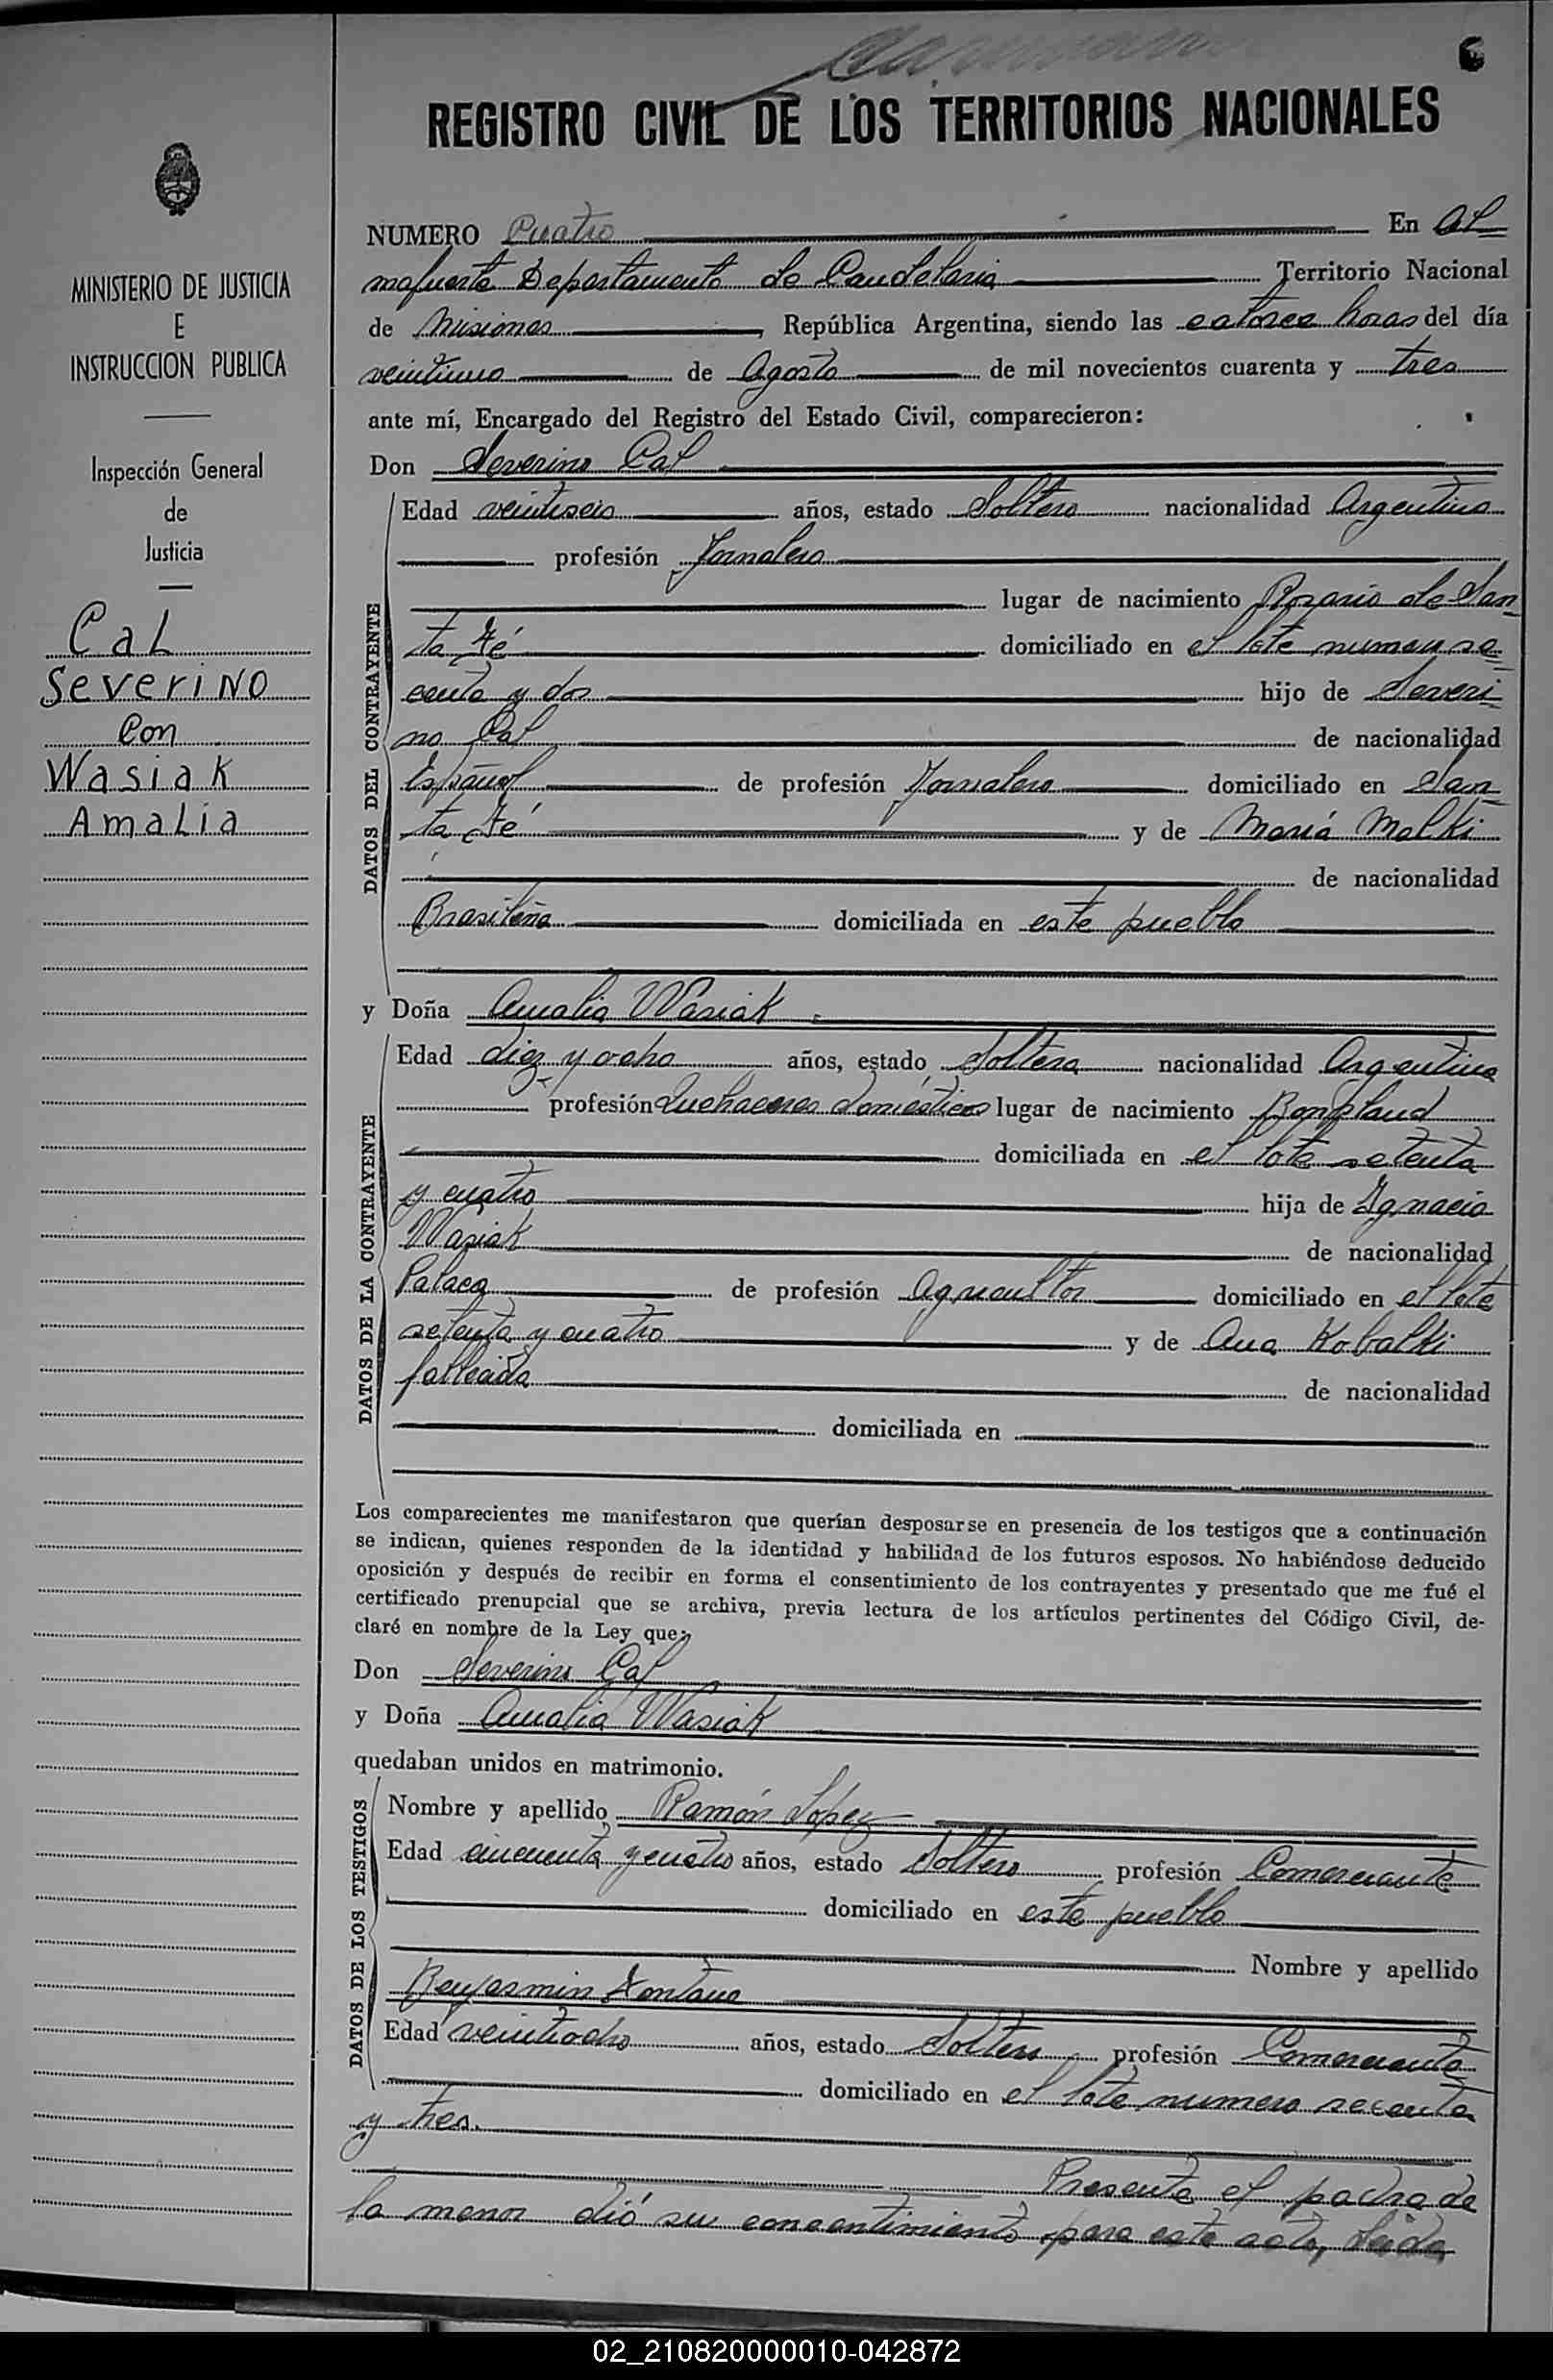 6
REGISTRO CIVIL DE LOS TERRITORIOS NACIONALES
MINISTERIO DE JUSTICIA
E
INSTRUCCION PUBLICA
Inspección General
de
Justicia
Cal
Severino
Con
Wasiak
Amalia
NUMERO Cuatro En Al
mafuerte Departamento de Candelaria Territorio Nacional
de Misiones, República Argentina, siendo las catorce horas del día
veintiuno de Agosto de mil novecientos cuarenta y tres
ante mí, Encargado del Registro del Estado Civil, comparecieron:
Don Severino Cal
DATOS DEL CONTRAYENTE
Edad veintiseis años, estado Soltero nacionalidad Argentino
profesión Jornalero
lugar de nacimiento Rosario de San
ta Fé domiciliado en el lote numero se
centa y dos hijo de Severi
no Cal de nacionalidad
Español de profesión Jornalero domiciliado en San
ta Fé y de María Malki
de nacionalidad
Brasileña domiciliada en este pueblo
y Doña Amalia Wasiak
DATOS DE LA CONTRAYENTE
Edad diez y ocho años, estado Soltera nacionalidad Argentina
profesión Quehaceres domésticos lugar de nacimiento Bonpland
domiciliada en el lote setenta
y cuatro hija de Ignacio
Wasiak de nacionalidad
Polaca de profesión agricultor domiciliado en el lote
setenta y cuatro y de Ana Kobalki
fallecida de nacionalidad
domiciliada en
Los comparecientes me manifestaron que querían desposarse en presencia de los testigos que a continuación
se indican, quienes responden de la identidad y habilidad de los futuros esposos. No habiéndose deducido
oposición y después de recibir en forma el consentimiento de los contrayentes y presentado que me fué el
certificado prenupcial que se archiva, previa lectura de los artículos pertinentes del Código Civil, de-
claré en nombre de la Ley que:
Don Severino Cal
y Doña Amalia Wasiak
quedaban unidos en matrimonio.
DATOS DE LOS TESTIGOS
Nombre y apellido Ramón Lopez
Edad cincuenta y cuatro años, estado Soltero profesión Comerciante
domiciliado en este pueblo
Nombre y apellido
Benjasmin Fontana
Edad veintiocho años, estado Soltero profesión Comerciante
domiciliado en el lote numero secenta
y tres.
Presente el padre de
la menor dió su concentimiento para este acto, Leida
02_210820000010-042872